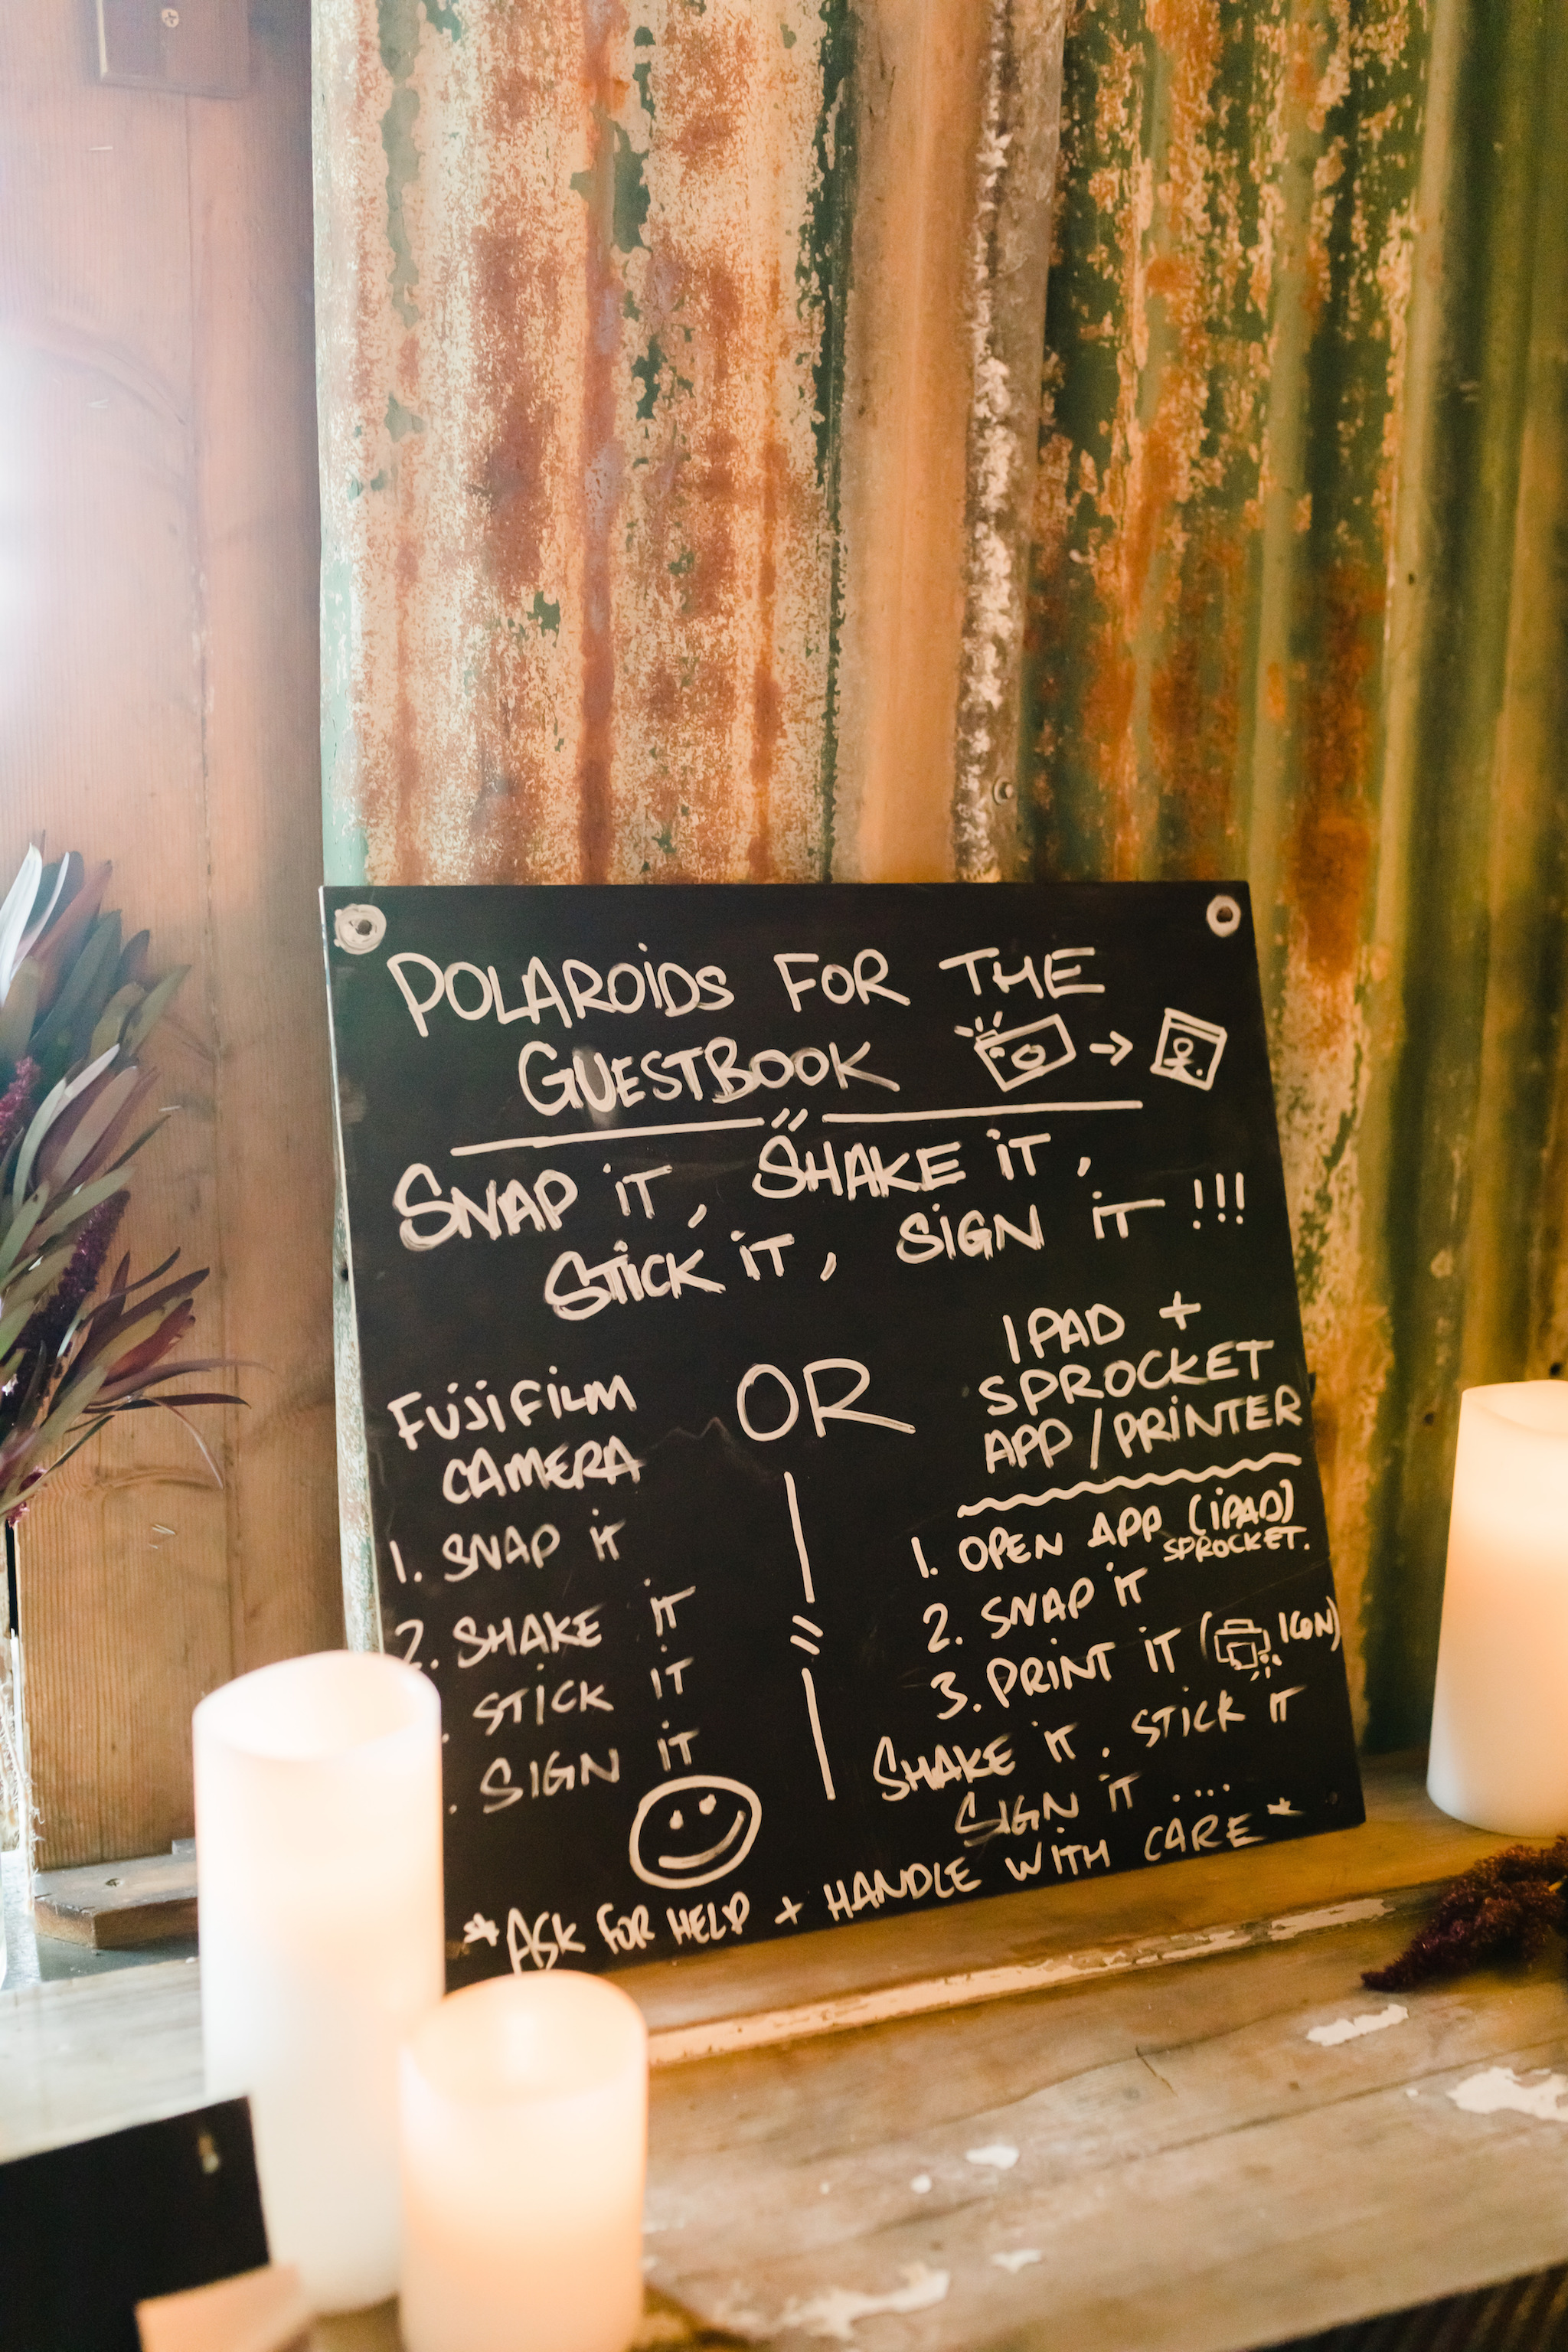 POLAROIDS FOR THE
GUESTBOOK
SNAP iT, SHAKE iT,
STiCK iT, SiGN iT !!!
FUJiFiLM
CAMERA
1. SNAP iT
2. SHAKE iT
. STiCK iT
. SiGN iT
OR
IPAD +
SPROCKET
APP / PRiNTER
1. OPEN APP (iPAD)
SPROCKET.
2. SNAP iT
3. PRiNT iT ( ICON)
SHAKE iT, STiCK iT
SiGN iT ....
*ASK FOR HELP + HANDLE WiTH CARE*